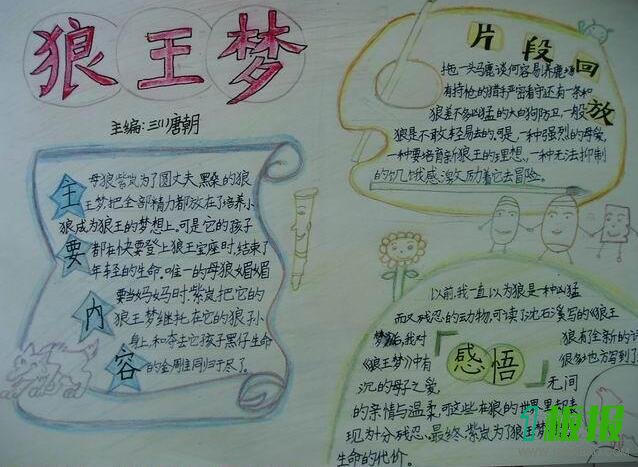 狼王梦
主编:三川唐朝
主要内容
母狼紫岚为了圆丈夫黑桑的狼
王梦把全部精力都放在了培养小
狼成为狼王的梦想上。可是它的孩子
都在快要登上狼王宝座时,结束了
年轻的生命。唯一的母狼媚媚
要当妈妈时,紫岚把它的
狼王梦继托在它的狼子
身上,和夺去它孩子黑仔生命
的金雕同归于尽了。
片段回放
拖一头马鹿谈何容易,养鹿场
有持枪的猎手严密看守还有一条和
狼差不多凶猛的大白狗防卫,一般
狼是不敢轻易去的。可是,一种强烈的母爱,
一种要培育新狼王的理想、一种无法抑制
的饥饿感激励着它去冒险。
感悟
以前,我一直以为狼是一种凶猛
而又残忍的动物,可读了沈石溪写的《狼王
梦》后,我对
狼有全新的
《狼王梦》中有
很多地方写到了
沉的母子之爱,
无间
的亲情与温柔,可这些在狼的世界里却表
现为十分残忍。最终,紫岚为了狼王梦
生命的代价。
1板报